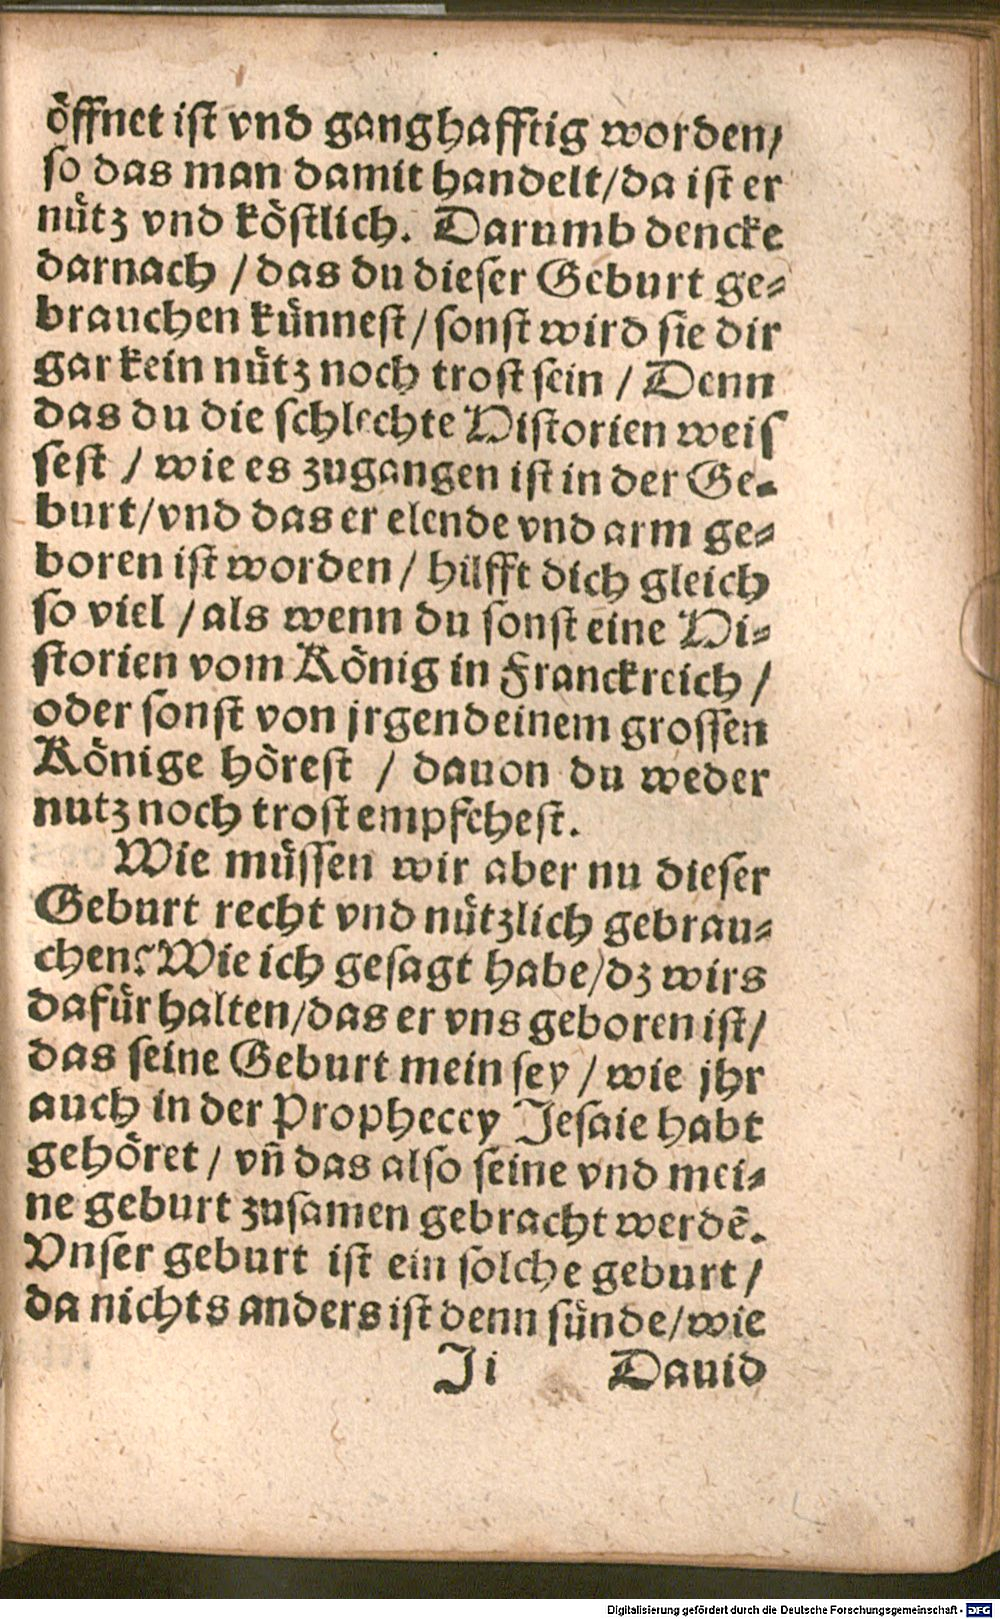 öffnet ist vnd ganghafftig worden/
so das man damit handelt/da ist er
nütz vnd köstlich. Darumb dencke
darnach / das du dieser Geburt ge-
brauchen künnest/sonst wird sie dir
gar kein nütz noch trost sein / Denn
das du die schlechte Historien weis
sest / wie es zugangen ist in der Ge-
burt/vnd das er elende vnd arm ge-
boren ist worden / hilfft dich gleich
so viel / als wenn du sonst eine Hi-
storien vom König in Franckreich /
oder sonst von jrgendeinem grossen
Könige hörest / dauon du weder
nutz noch trost empfehest.
Wie müssen wir aber nu dieser
Geburt recht vnd nützlich gebrau-
chen? Wie ich gesagt habe/dz wirs
dafür halten/das er vns geboren ist/
das seine Geburt mein sey / wie jhr
auch in der Prophecey Jesaie habt
gehöret / vñ das also seine vnd mei-
ne geburt zusamen gebracht werdē.
Vnser geburt ist ein solche geburt /
da nichts anders ist denn sünde/wie
Ji David
Digitalisierung gefördert durch die Deutsche Forschungsgemeinschaft - DFG